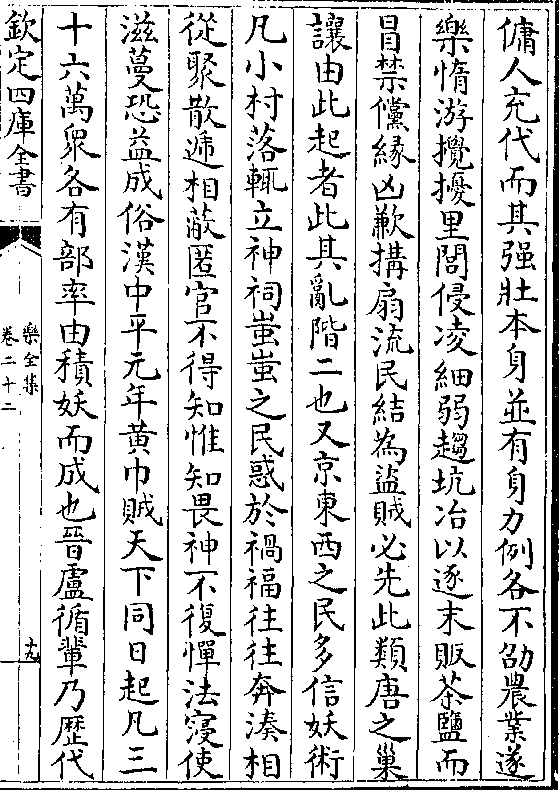 傭人充代而其强壯本身並有身力例各不劭農業遂
樂惰游攪擾里閭侵凌細弱趨坑冶以逐末販茶鹽而
冒禁儻緣凶歉搆扇流民結為盜賊必先此類唐之巢
讓由此起者此其亂階二也又京東西之民多信妖術
凡小村落輒立神祠蚩蚩之民惑於禍福往往奔湊相
從聚散遞相蔽匿官不得知惟知畏神不復憚法寖使
滋蔓恐益成俗漢中平元年黄巾賊天下同日起凡三
十六萬衆各有部率由積妖而成也晉盧循輩乃歴代
欽定四庫全書
樂全集
卷二十二
十九